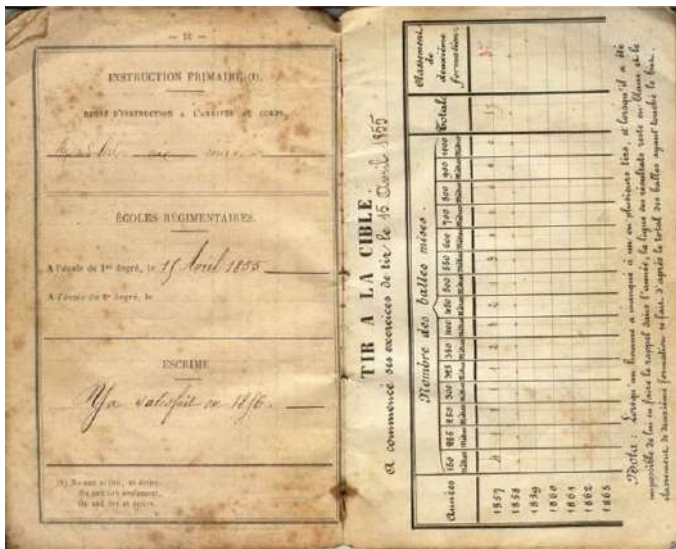 — 10 —
INSTRUCTION PRIMAIRE (1).
DEGRÉ D'INSTRUCTION A L'ARRIVÉE AU CORPS.
ÉCOLES RÉGIMENTAIRES.
A l'école du 1er degré, le 15 Avril 1855
A l'école du 2e degré, le
ESCRIME
Y a satisfait en 1856.
(1) Ne sait ni lire, ni écrire.
Ou sait lire seulement.
Ou sait lire et écrire.
TIR A LA CIBLE.
A commencé ses exercices de tir le 15 Avril 1855
Années
Nombre des balles mises.
Total
Classement de deuxième formation.
150 225 250 300 325 350 400 450 500 550 600 700 800 900 1000
1857
1858
1859
1860
1861
1862
1863
Nota : Lorsqu'un homme a manqué à un ou plusieurs tirs, et lorsqu'il a été
impossible de lui en faire le rappel dans l'année, la ligne des résultats reste en blanc et le
classement de deuxième formation se fait d'après le total des balles ayant touché le but.